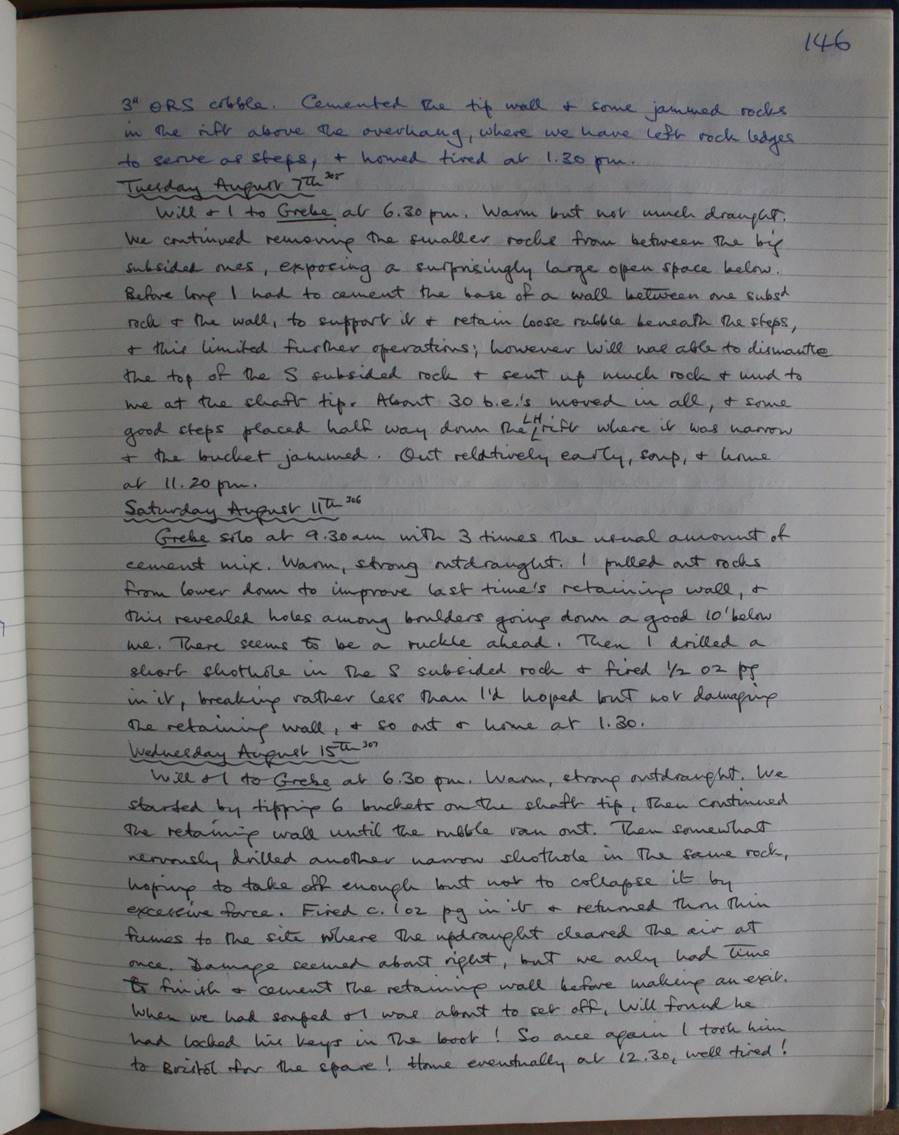 146
3" ORS cobble. Cemented the tip wall & some jammed rocks
in the rift above the overhang, where we have left rock ledges
to serve as steps, & homed tired at 1.30 pm.
Tuesday August 7th 305
Will & I to Grebe at 6.30 pm. Warm but not much draught.
We continued removing the smaller rocks from between the big
subsided ones, exposing a surprisingly large open space below.
Before long I had to cement the base of a wall between one subsd
rock & the wall, to support it & retain loose rubble beneath the steps,
& this limited further operations; however Will was able to dismantle
the top of the S subsided rock & sent up much rock & mud to
me at the shaft tip. About 30 b.e.'s moved in all, & some
good steps placed half way down the LH rift where it was narrow
& the bucket jammed. Out relatively early, soup, & home
at 11.20 pm.
Saturday August 11th 306
Grebe solo at 9.30 am with 3 times the usual amount of
cement mix. Warm, strong outdraught. I pulled out rocks
from lower down to improve last time's retaining wall, &
this revealed holes among boulders going down a good 10' below
me. There seems to be a ruckle ahead. Then I drilled a
short shothole in the S subsided rock & fired 1/2 oz pg
in it, breaking rather less than I'd hoped but not damaging
the retaining wall, & so out & home at 1.30.
Wednesday August 15th 307
Will & I to Grebe at 6.30 pm. Warm, strong outdraught. We
started by tipping 6 buckets on the shaft tip, then continued
the retaining wall until the rubble ran out. Then somewhat
nervously drilled another narrow shothole in the same rock,
hoping to take off enough but not to collapse it by
excessive force. Fired c. 1 oz pg in it & returned thru thin
fumes to the site where the updraught cleared the air at
once. Damage seemed about right, but we only had time
to finish & cement the retaining wall before making an exit.
When we had souped & I was about to set off, Will found he
had locked his keys in the boot! So once again I took him
to Bristol for the spare! Home eventually at 12.30, well tired!